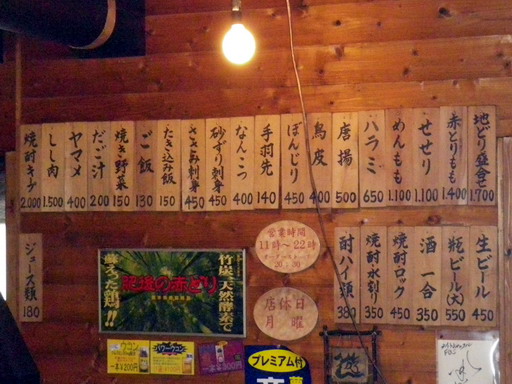 地どり盛合せ 1.700
赤とりもも 1.400
せせり 1.100
めんもも 1.100
ハラミ 650
唐揚 500
鳥皮 400
ぼんじり 450
手羽先 140
なんこつ 400
砂ずり刺身 450
ささみ刺身 450
たき込み飯 150
ご飯 130
焼き野菜 150
だご汁 200
ヤマメ 400
しし肉 1.500
焼酎キープ 2.000
生ビール 450
瓶ビール(大) 550
酒一合 350
焼酎ロック 450
焼酎水割り 350
酎ハイ類 380
ジュース類 180
営業時間
11時〜22時
オーダーストップ
20:30
店休日
月曜
竹炭、天然酵素で
肥後の赤どり
蘇えった鶏!!
ウコン
一本¥200円
パワーウコン
プレミアム付